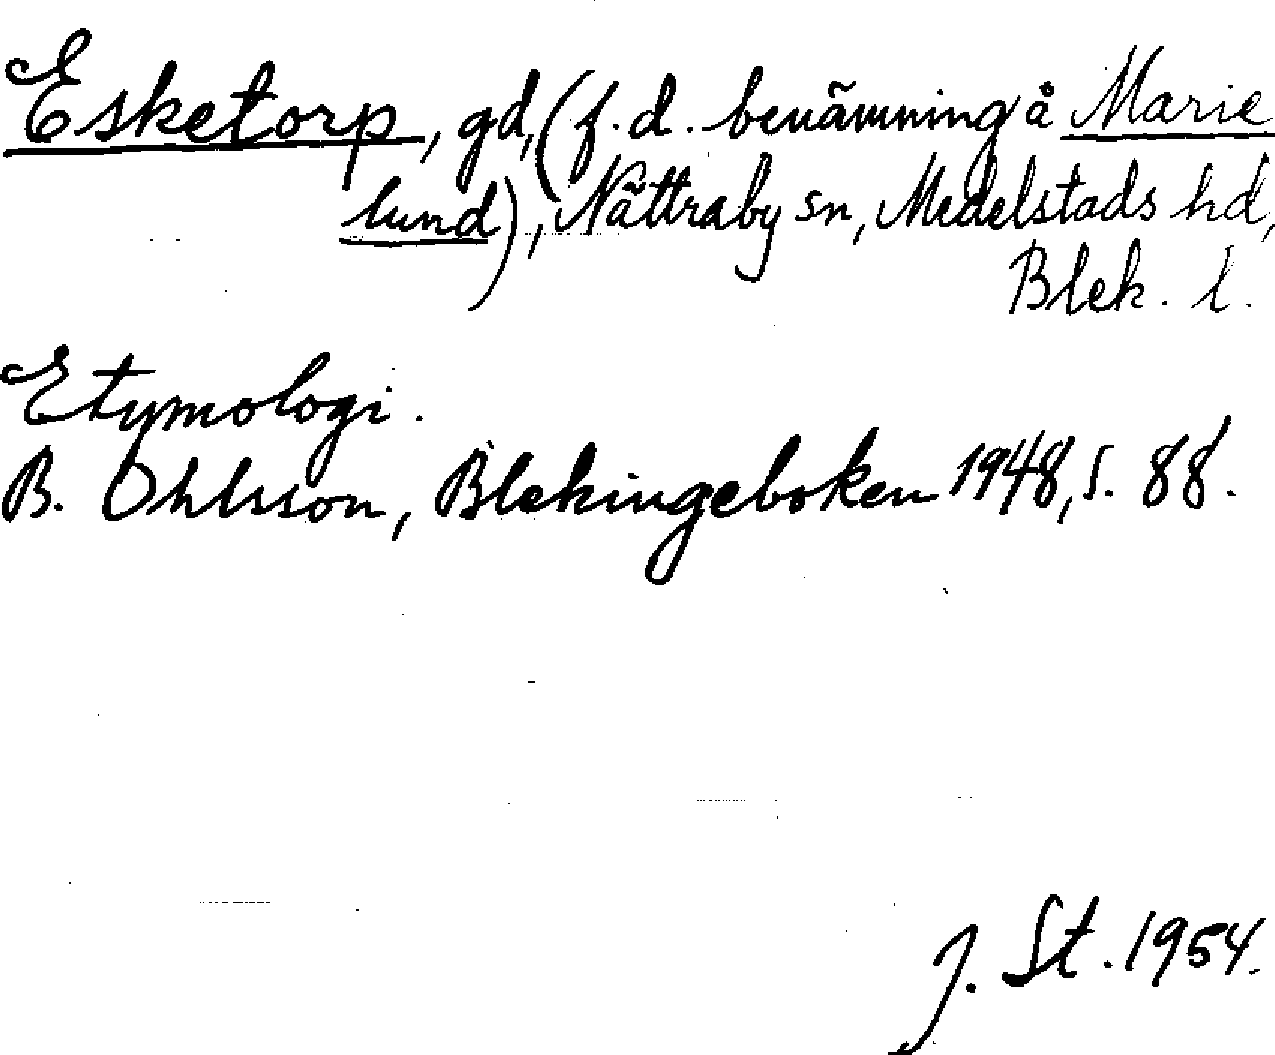 Esketorp, gd, (f.d. benämning å Marie
lund), Nättraby sn, Medelstads hd,
Blek. l.
Etymologi.
B. Ohlsson, Blekingeboken 1948, s. 88.
J. St. 1954.